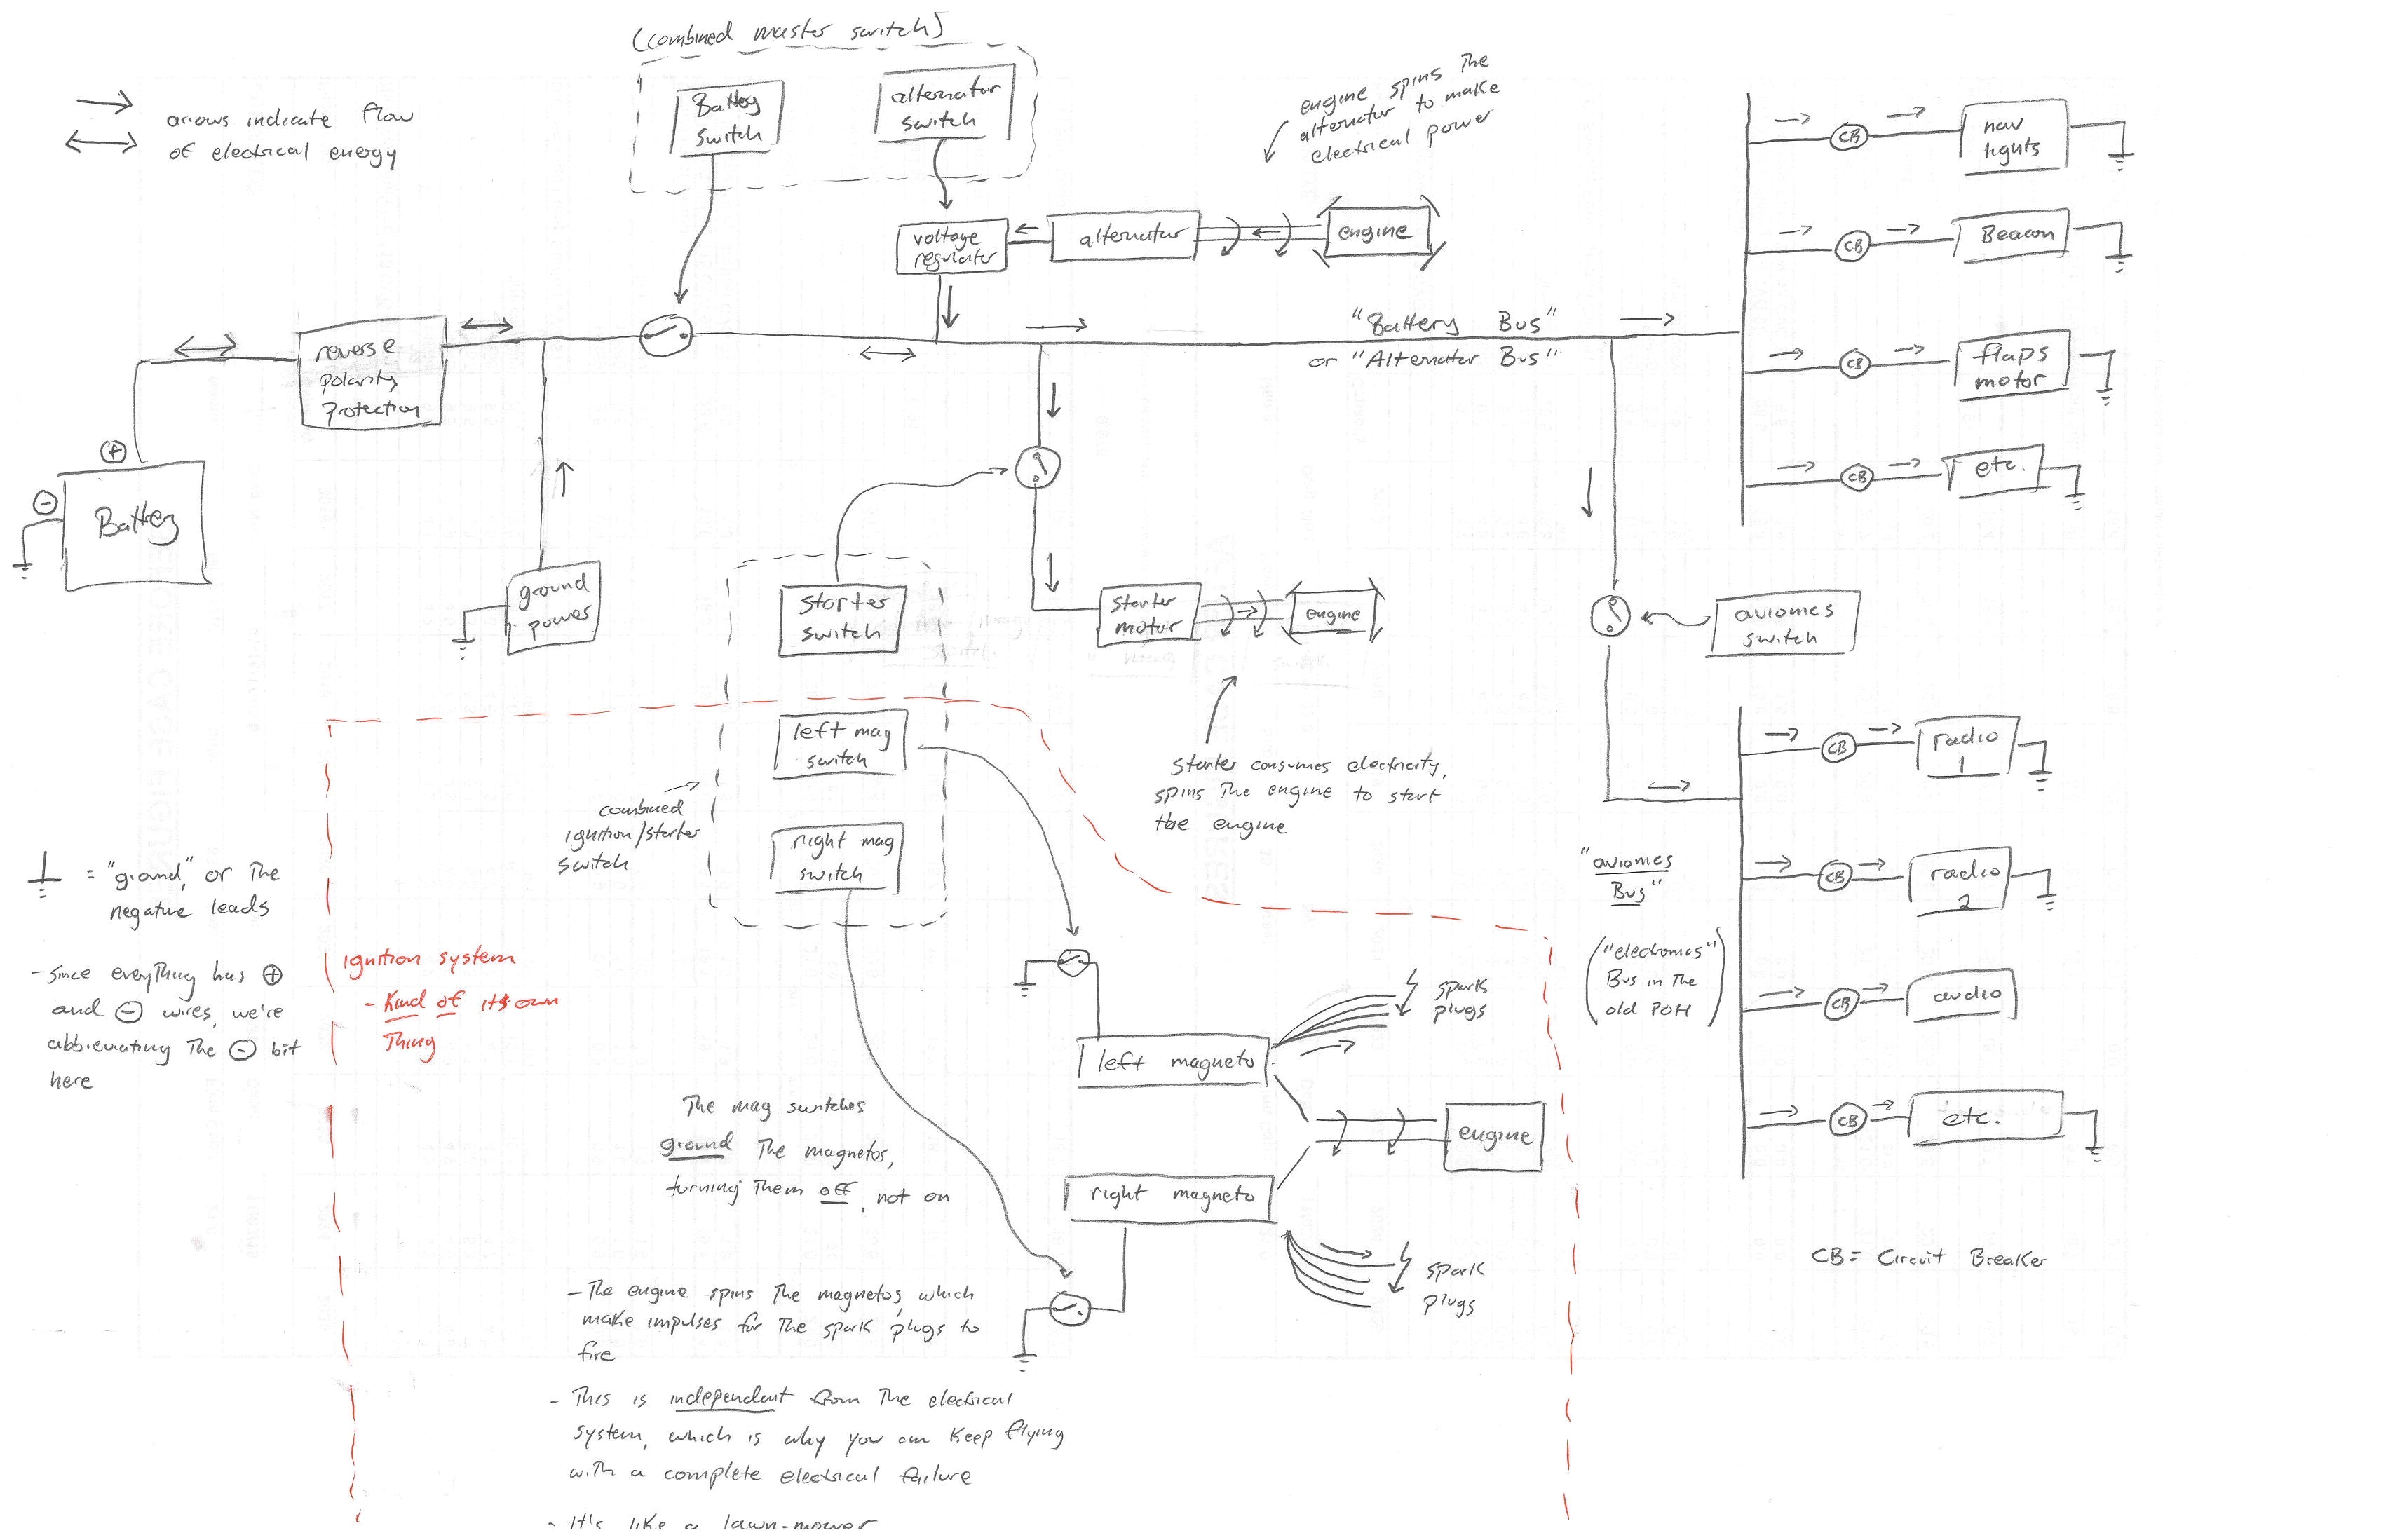 (combined master switch)
Battery
switch
alternator
switch
arrows indicate flow
of electrical energy
engine spins the
alternator to make
electrical power
voltage
regulator
alternator
engine
"Battery Bus"
or "Alternator Bus"
reverse
polarity
protection
+
-
Battery
ground
power
starter
switch
starter
motor
engine
left mag
switch
right mag
switch
combined
ignition/starter
switch
starter consumes electricity,
spins the engine to start
the engine
CB
nav
lights
CB
Beacon
CB
flaps
motor
CB
etc.
avionics
switch
CB
radio
1
CB
radio
2
CB
audio
CB
etc.
"avionics
Bus"
("electronics"
Bus in the
old POH)
CB= Circuit Breaker
= "ground," or the
negative leads
- since everything has +
and - wires, we're
abbreviating the - bit
here
ignition system
- Kind of its own
thing
left magneto
spark
plugs
engine
right magneto
spark
plugs
The mag switches
ground the magnetos,
turning them off, not on
- The engine spins the magnetos, which
make impulses for the spark plugs to
fire
- This is independent from the electrical
system, which is why you can keep flying
with a complete electrical failure
- It's like a lawn-mower